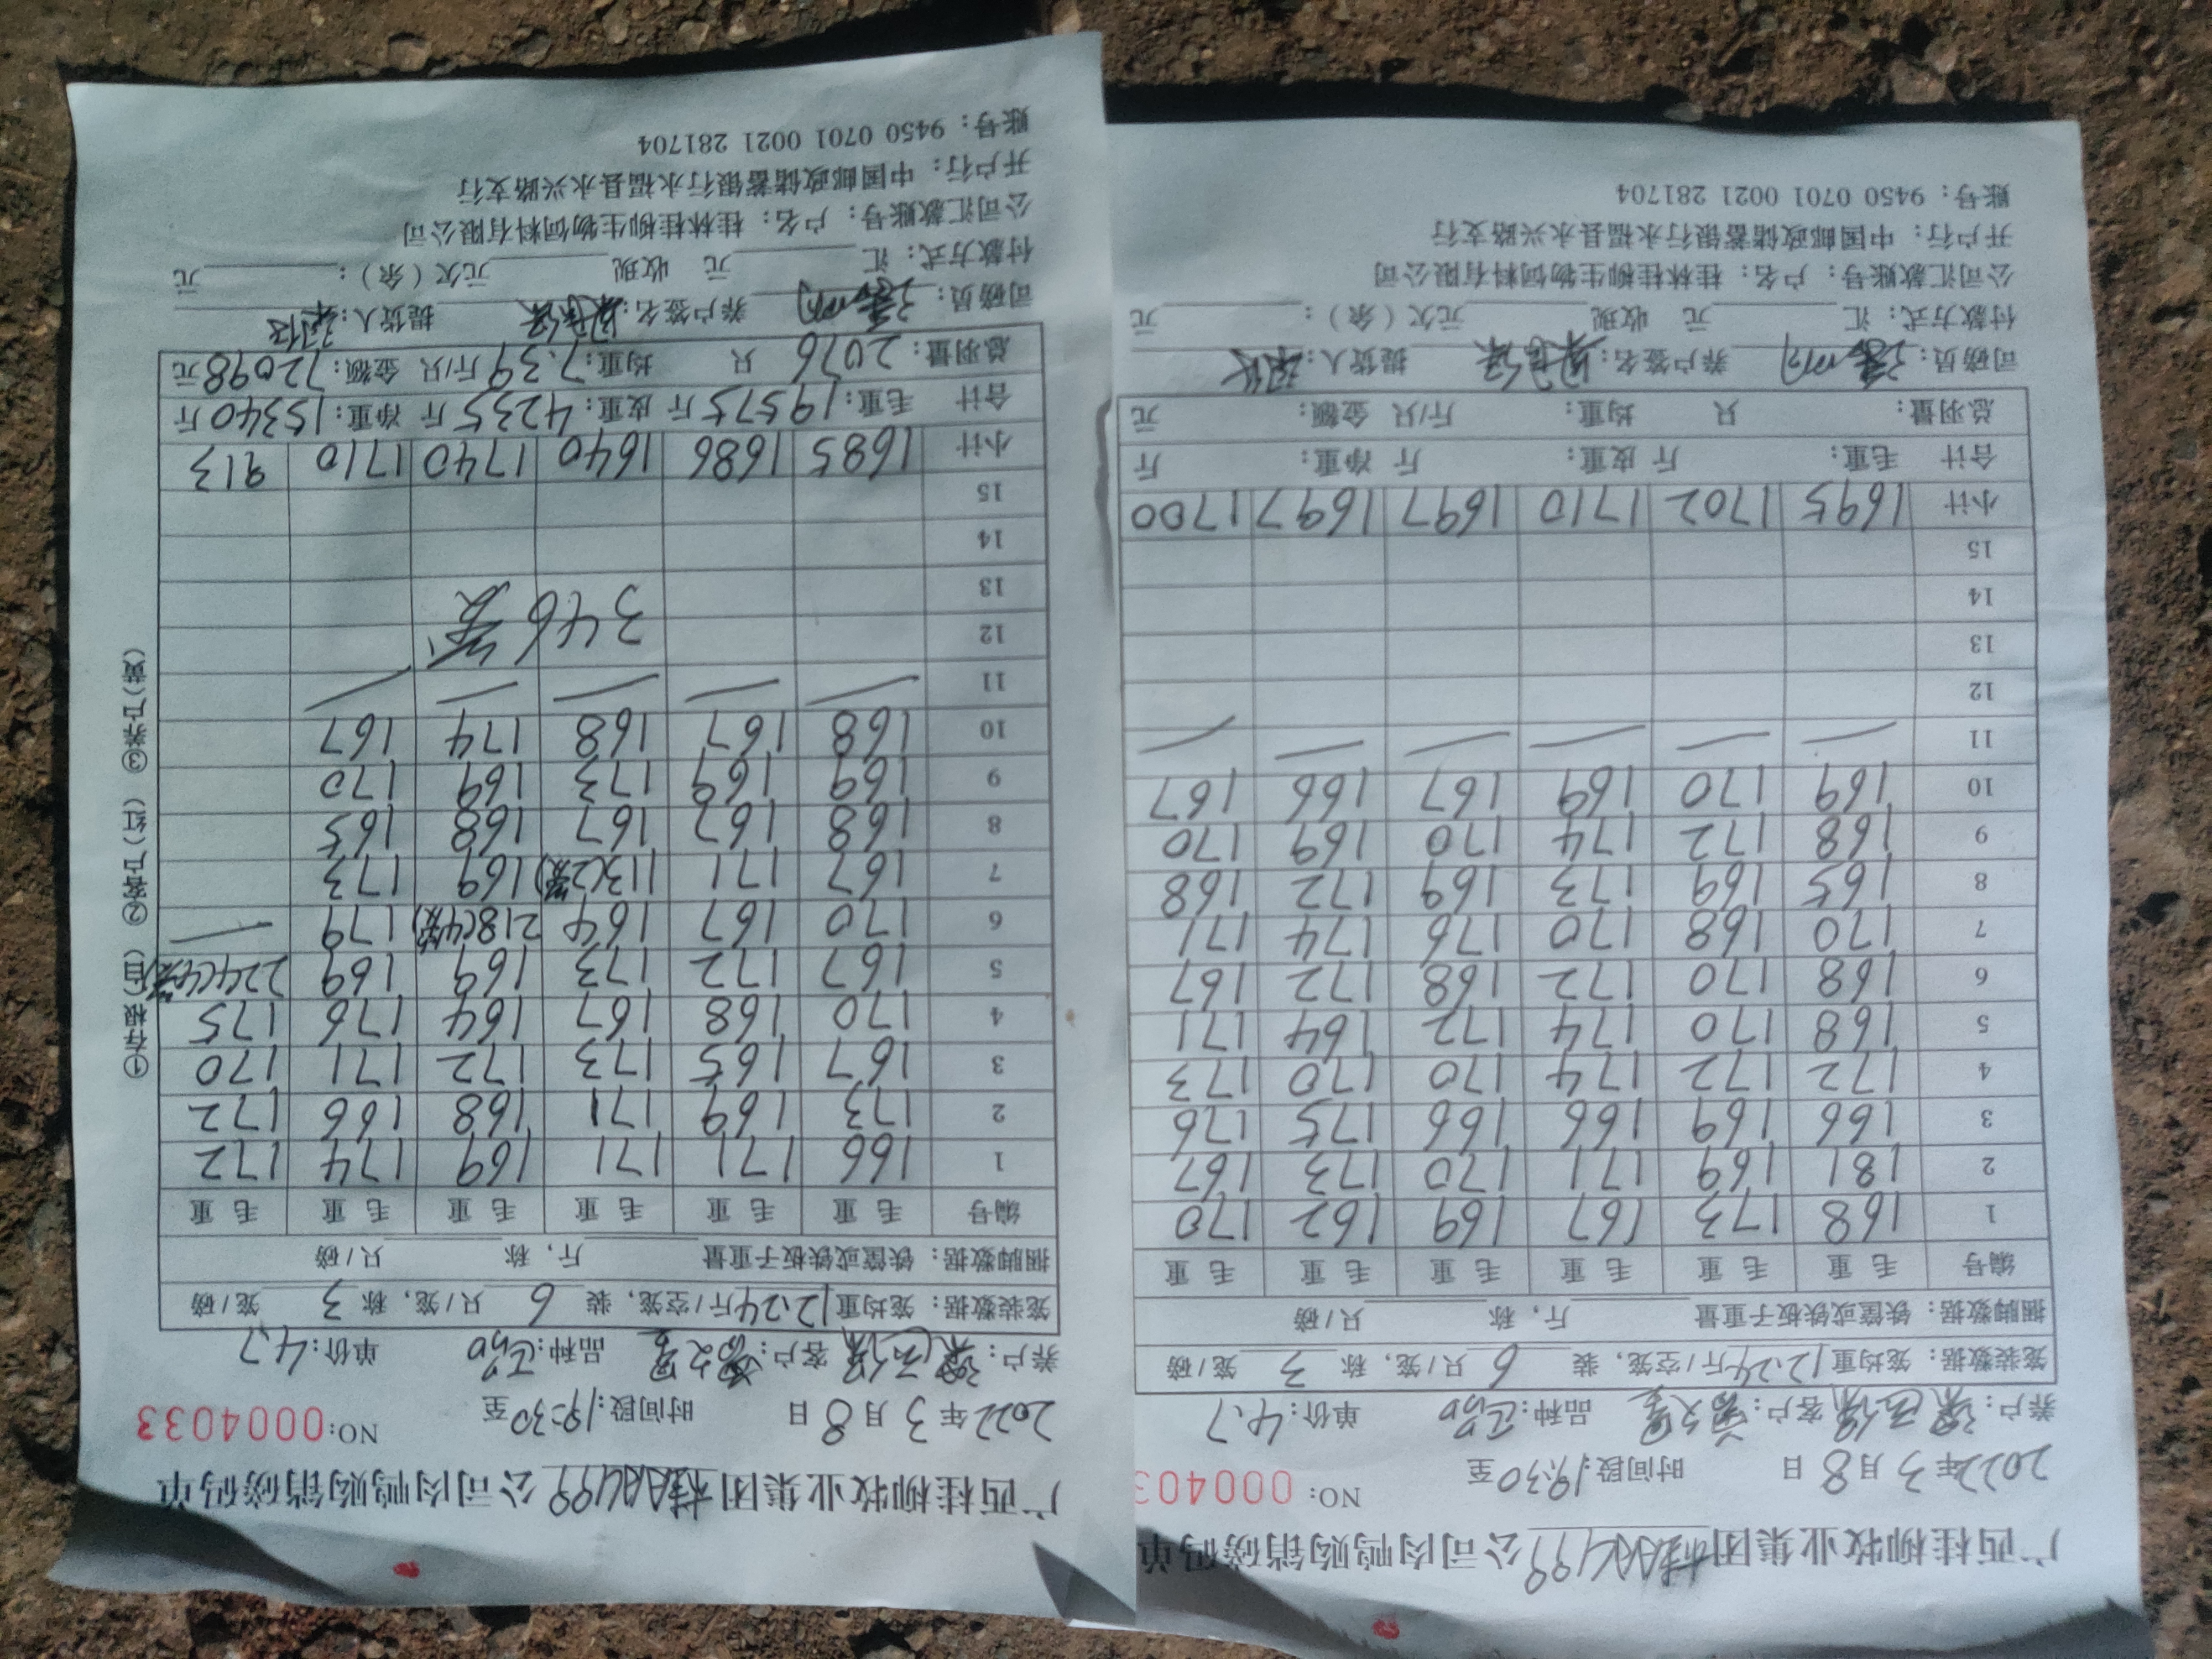 广西桂柳牧业集团公司肉鸭购销磅码单
2022年3月8日 时间段:19:30至 NO: 000403
养户: 客户: 品种: 单价:4.7
笼装数据: 笼均重12.24斤/空笼, 装6只/笼, 称3笼/磅
捆脚数据: 铁筐或铁板子重量 斤, 称 只/磅
编号 毛重 毛重 毛重 毛重 毛重 毛重
1 168 173 167 169 162 170
2 181 169 171 170 173 167
3 166 169 166 166 175 176
4 172 172 174 170 170 173
5 168 170 174 172 164 171
6 168 170 172 168 172 167
7 170 168 170 176 174 171
8 165 169 173 169 172 168
9 168 172 174 170 169 170
10 169 170 169 167 166 167
11
12
13
14
15
小计 1695 1702 1710 1697 1697 1700
合计 毛重: 斤 皮重: 斤 净重: 斤
总羽量: 只 均重: 斤/只 金额: 元
司磅员: 养户签名: 提货人:
付款方式: 汇 元 收现 元欠(余): 元
公司汇款账号: 户名: 桂林桂柳生物饲料有限公司
开户行: 中国邮政储蓄银行永福县永兴路支行
账号: 9450 0701 0021 281704
广西桂柳牧业集团公司肉鸭购销磅码单
2022年3月8日 时间段:19:30至 NO:0004033
养户: 客户: 品种: 单价:4.7
笼装数据: 笼均重12.24斤/空笼, 装6只/笼, 称3笼/磅
捆脚数据: 铁筐或铁板子重量 斤, 称 只/磅
编号 毛重 毛重 毛重 毛重 毛重 毛重
1 166 171 171 169 174 172
2 173 169 171 168 166 172
3 167 165 173 172 171 170
4 170 168 167 164 176 175
5 167 172 173 169 169 224(4笼)
6 170 167 164 218(4笼) 179
7 167 171 113(2笼) 169 173
8 168 167 167 168 165
9 169 169 173 169 170
10 168 167 168 174 167
11
12
346笼
13
14
15
小计 1685 1686 1640 1740 1710 913
合计 毛重:19575斤 皮重:4235斤 净重:15340斤
总羽量:2076只 均重:7.39斤/只 金额:72098元
司磅员: 养户签名: 提货人:
付款方式: 汇 元 收现 元欠(余): 元
公司汇款账号: 户名: 桂林桂柳生物饲料有限公司
开户行: 中国邮政储蓄银行永福县永兴路支行
账号: 9450 0701 0021 281704
①存根(白) ②客户(红) ③养户(黄)